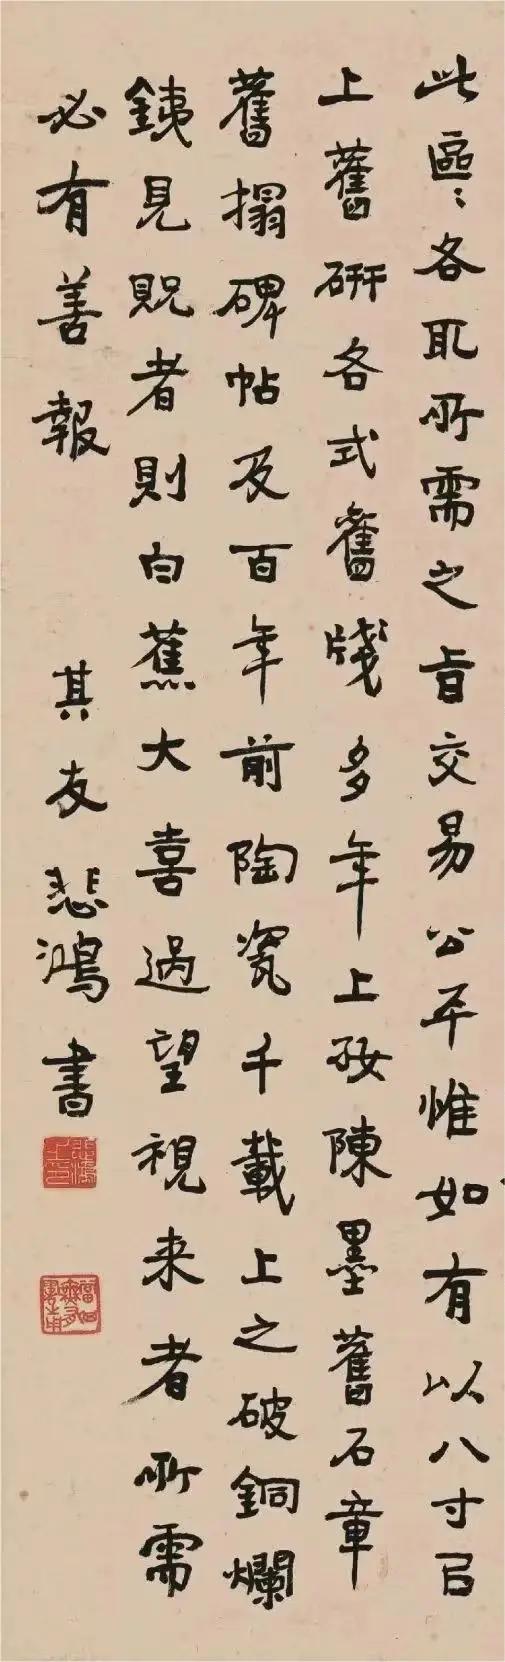 此區〻各取所需之旨交易公平惟如有以八寸㠯
上舊硏各式舊牋多年上好陳墨舊石章
舊搨碑帖及百年前陶瓷千載上之破銅爛
銕見貺者則白蕉大喜過望視来者所需
必有善報 其友悲鴻書
悲鴻之印